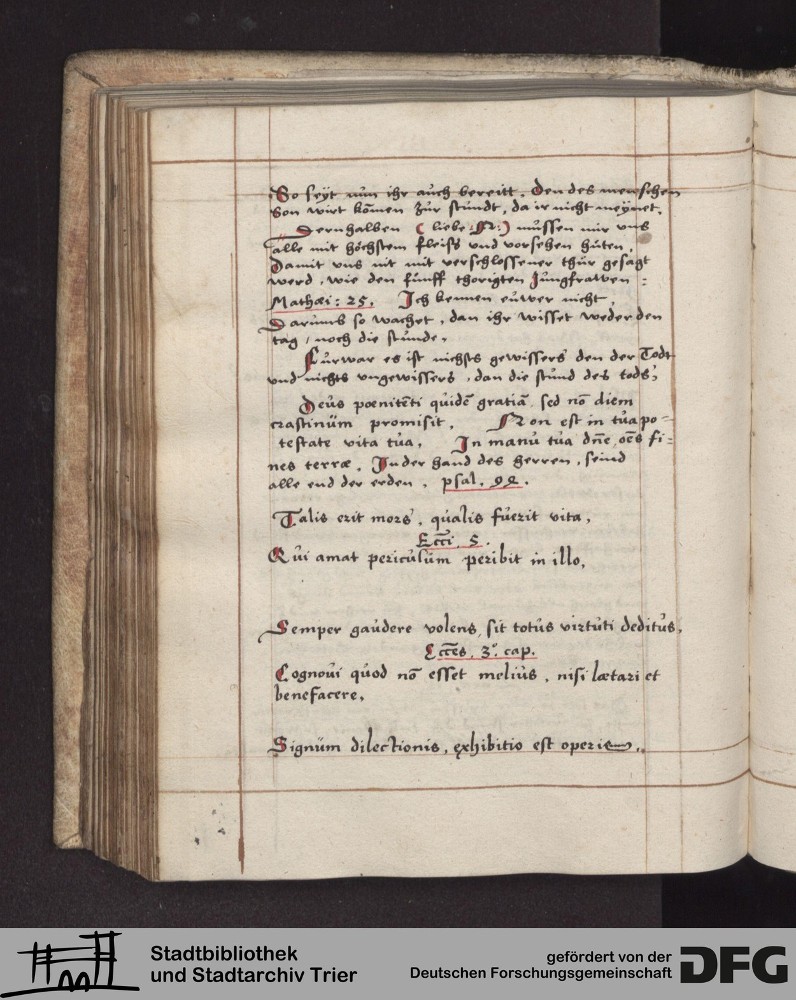 So seÿt nun ihr auch bereitt. Den des menschen
Son wirt kōmen zur stundt, da ir nicht meÿnet.
Dernhalben ( liebe :N: ) mussen mir vns
alle mit höchstem fleiss vnd vorsehen huten,
Damit vns nit mit verschlossener thür gesagt
werd, wie den funff thorigten Jungfrawen :
Mathæi: 25. Ich kennen euwer nicht,
Darumb so wachet, dan ihr wisset weder den
tag / noch die stunde.
Furwar es ist nichts gewissers den der Todt
vnd nichts vngewissers, dan die stund des tods,
Deus pœnitēti quidē gratiā, sed nō diem
crastinum promisit. Non est in tua po=
testate vita tua, In manu tua dn̄e, oēs fi=
nes terræ, In der hand des herren, seind
alle end der erden. psal. 99.
Talis erit mors, qualis fuerit vita,
Ecc̄i, 5.
Qui amat periculum peribit in illo,
Semper gaudere volens, sit totus virtuti deditus,
Ecc̄es. 3. cap.
Cognoui quod nō esset melius, nisi lætari et
benefacere,
Signum dilectionis, exhibitio est operis.
Stadtbibliothek
und Stadtarchiv Trier
gefördert von der
Deutschen Forschungsgemeinschaft
DFG